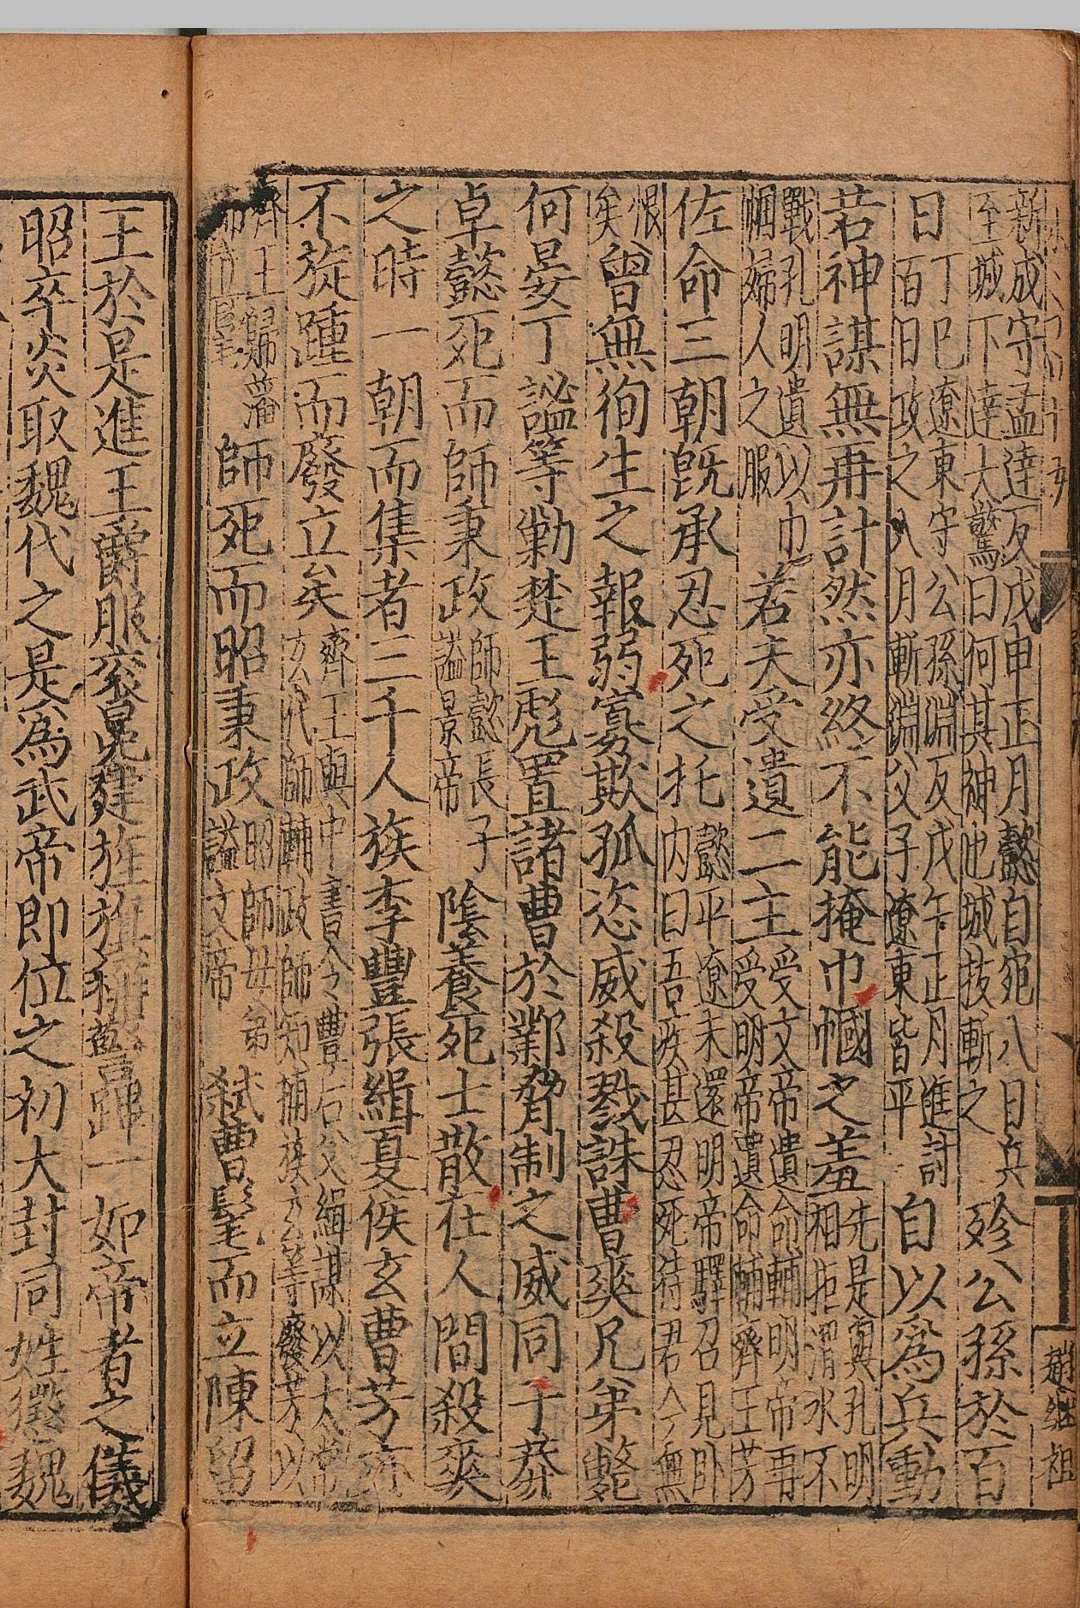 新成守孟達反戊申正月懿自宛八日兵
至城下達大驚曰何其神也城拔斬之
殄公孫於百
日
丁巳遼東守公孫淵反戊午正月進討
百日攻之八月斬淵父子遼東皆平
自以為兵動
若神謀無再計然亦終不能掩巾幗之羞
先是與孔明
相拒渭水不
戰孔明遺以巾
幗婦人之服
若夫受遺二主
受文帝遺命輔明帝再
受明帝遺命輔齊王芳
佐命三朝旣承忍死之托
懿平遼未還明帝驛召見卧
内曰吾疾甚忍死待君今無
恨
矣
曾無徇生之報弱寡欺孤恣威殺戮誅曹爽兄弟斃
何晏丁謐等勦楚王彪置諸曹於鄴脅制之威同于莽
卓懿死而師秉政
師懿長子
謚景帝
陰養死士散在人間殺爽
之時一朝而集者三千人族李豐張緝夏侯玄曹芳亦
不旋踵而廢立矣
齊王與中書令豐后父緝謀以太常
玄代師輔政師知捕族玄等廢芳以
齊王歸藩
師死而昭秉政
昭師母弟
謚文帝
弒曹髦而立陳留
王於是進王爵服衮冕建旌旂稱警蹕一如帝者之儀
昭卒炎取魏代之是爲武帝即位之初大封同姓徵魏
趙继祖